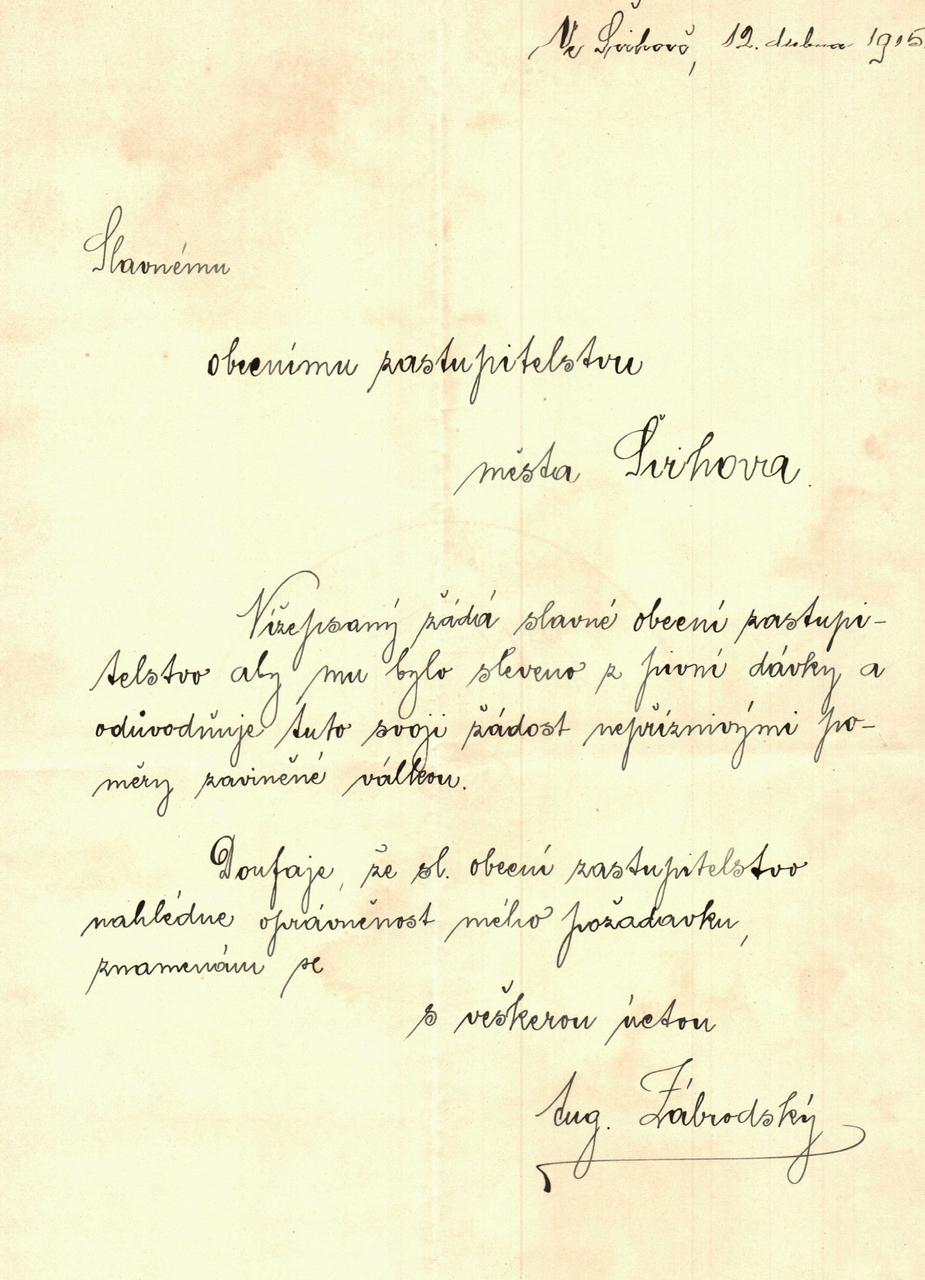 Ve Švihově, 12. dubna 1915.
Slavnému
obecnímu zastupitelstvu
města Švihova.
Nížepsaný žádá slavné obecní zastupi-
telstvo aby mu bylo sleveno z pivní dávky a
odůvodňuje tuto svoji žádost nepříznivými po-
měry zaviněné válkou.
Doufaje, že sl. obecní zastupitelstvo
nahlédne oprávněnost mého požadavku,
znamenám se
s veškerou úctou
Aug. Zábrodský